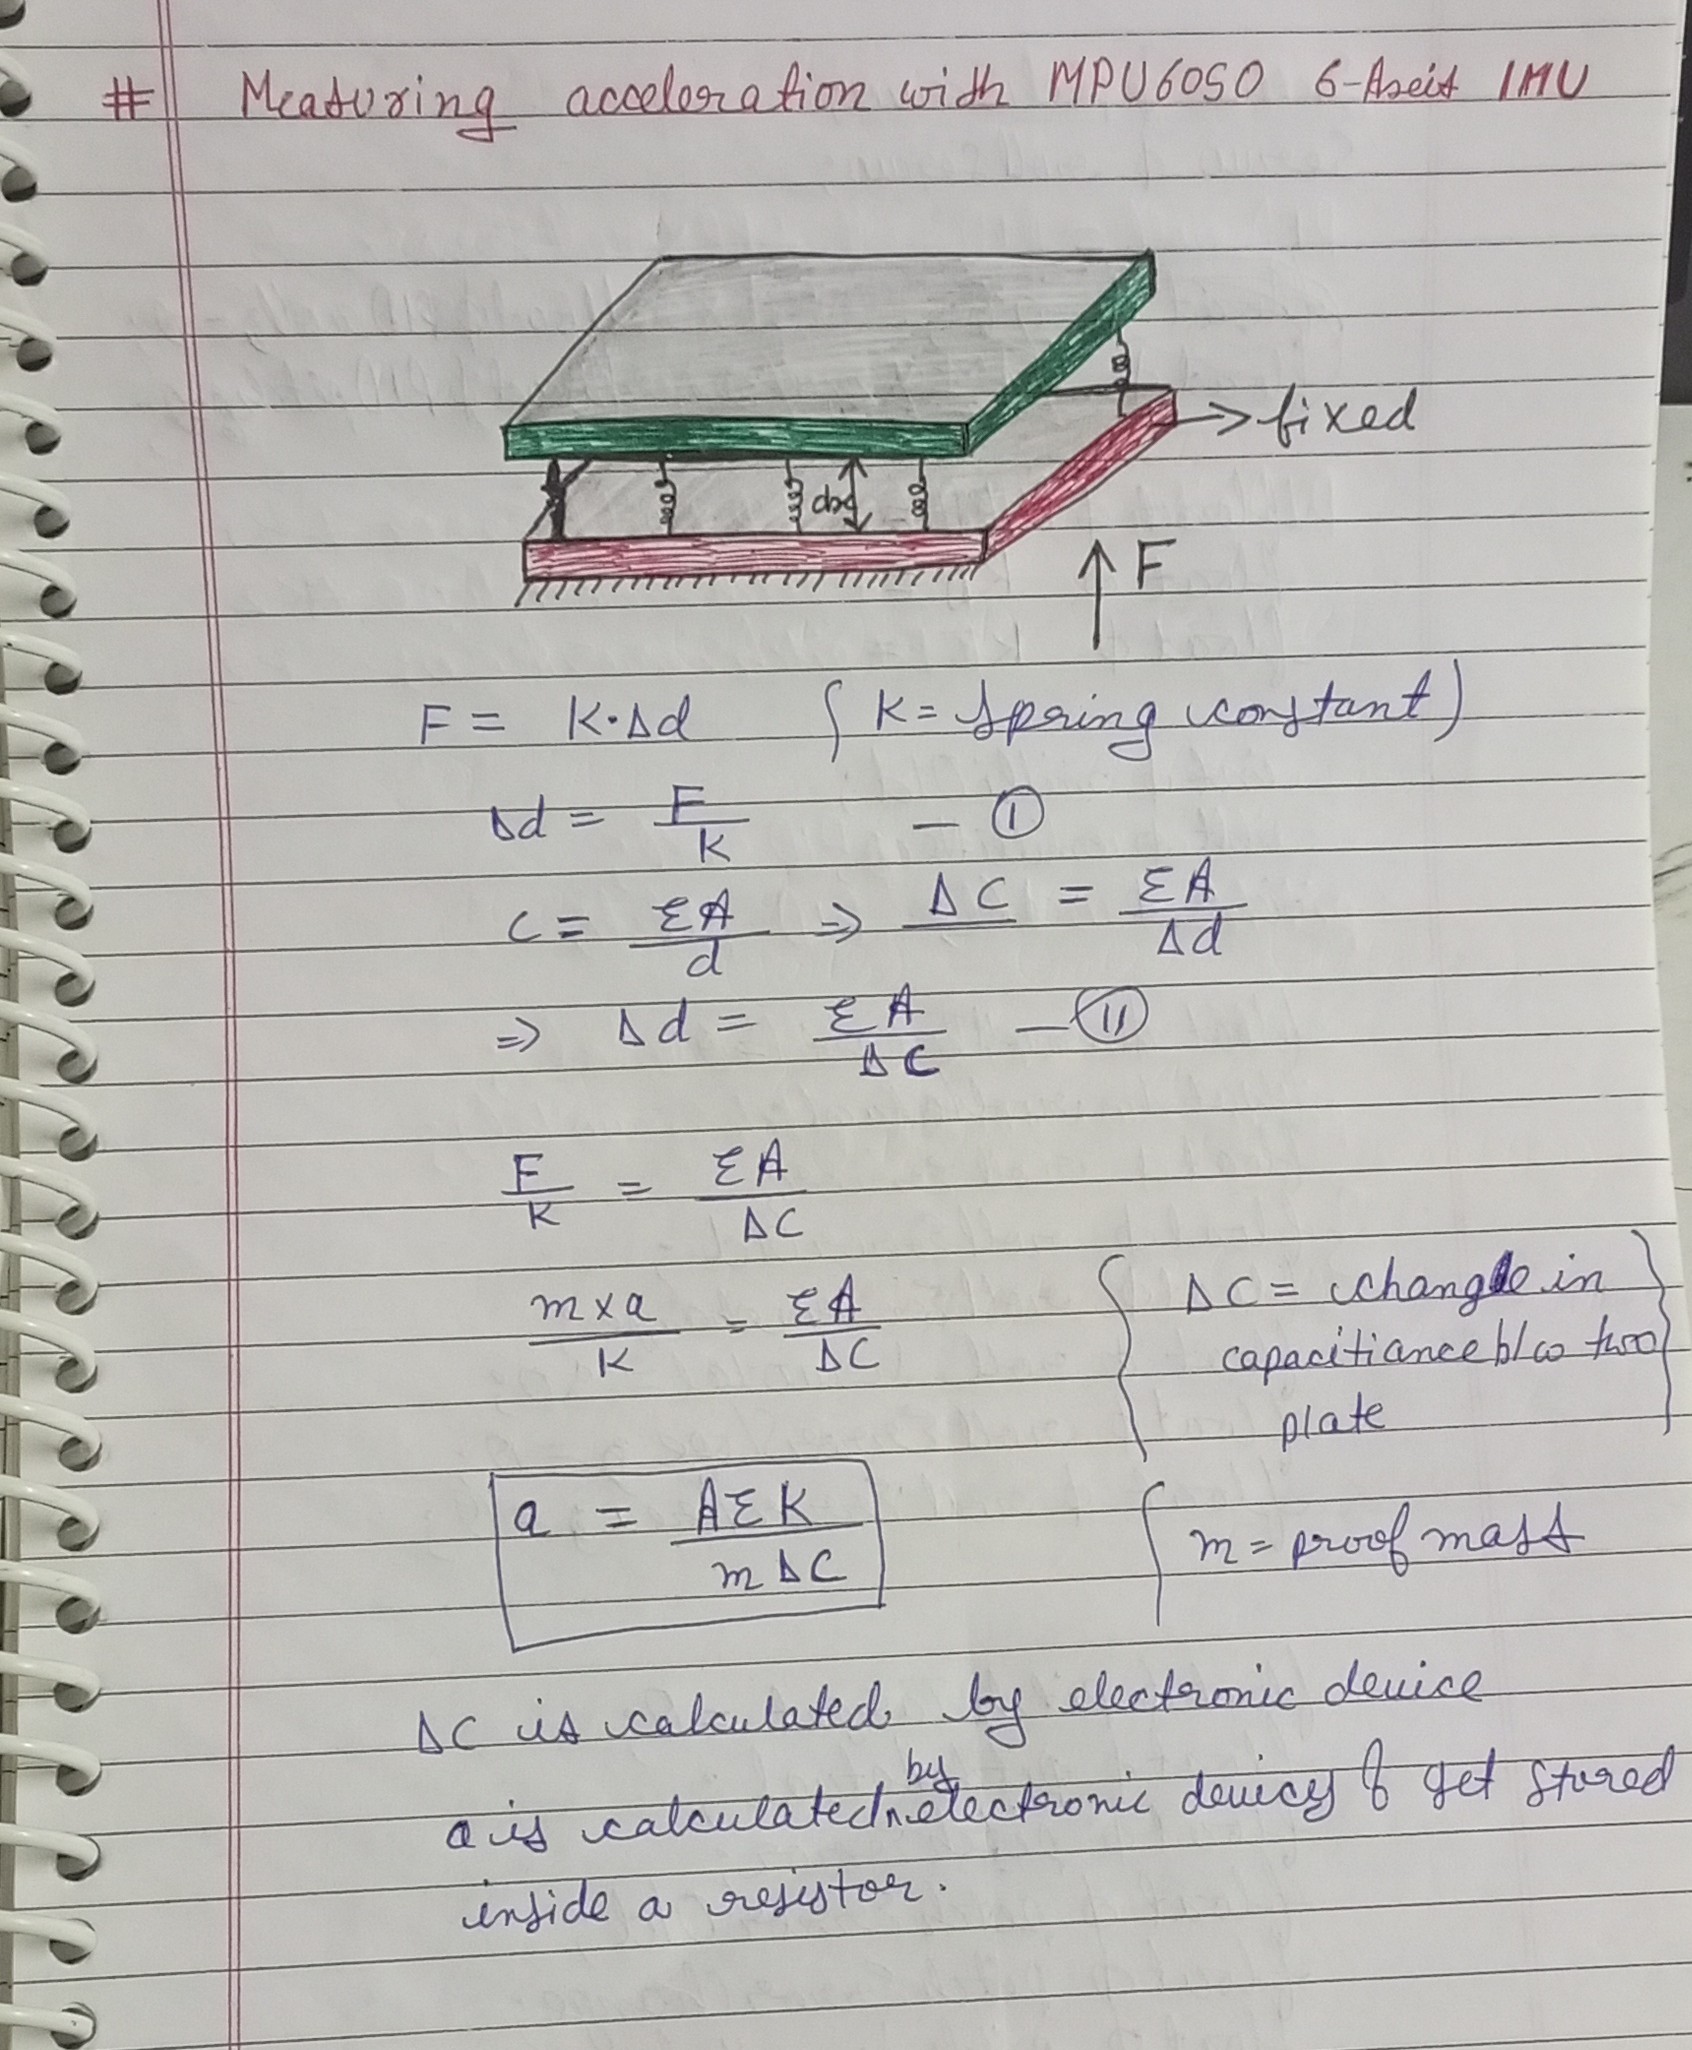 # Measuring acceleration with MPU6050 6-Axis IMU
→ fixed
dx
↑ F
F = K·Δd { K = Spring constant )
Δd = F/K — ①
C = ƐA/d ⇒ ΔC = ƐA/Δd
⇒ Δd = ƐA/ΔC — ⑪
F/K = ƐA/ΔC
m×a/K = ƐA/ΔC
{ ΔC = change in
capacitiance b/w two
plate }
a = AƐK/mΔC
{ m = proof mass
ΔC is calculated by electronic device
a is calculated by electronic devices & get stored
inside a resistor.